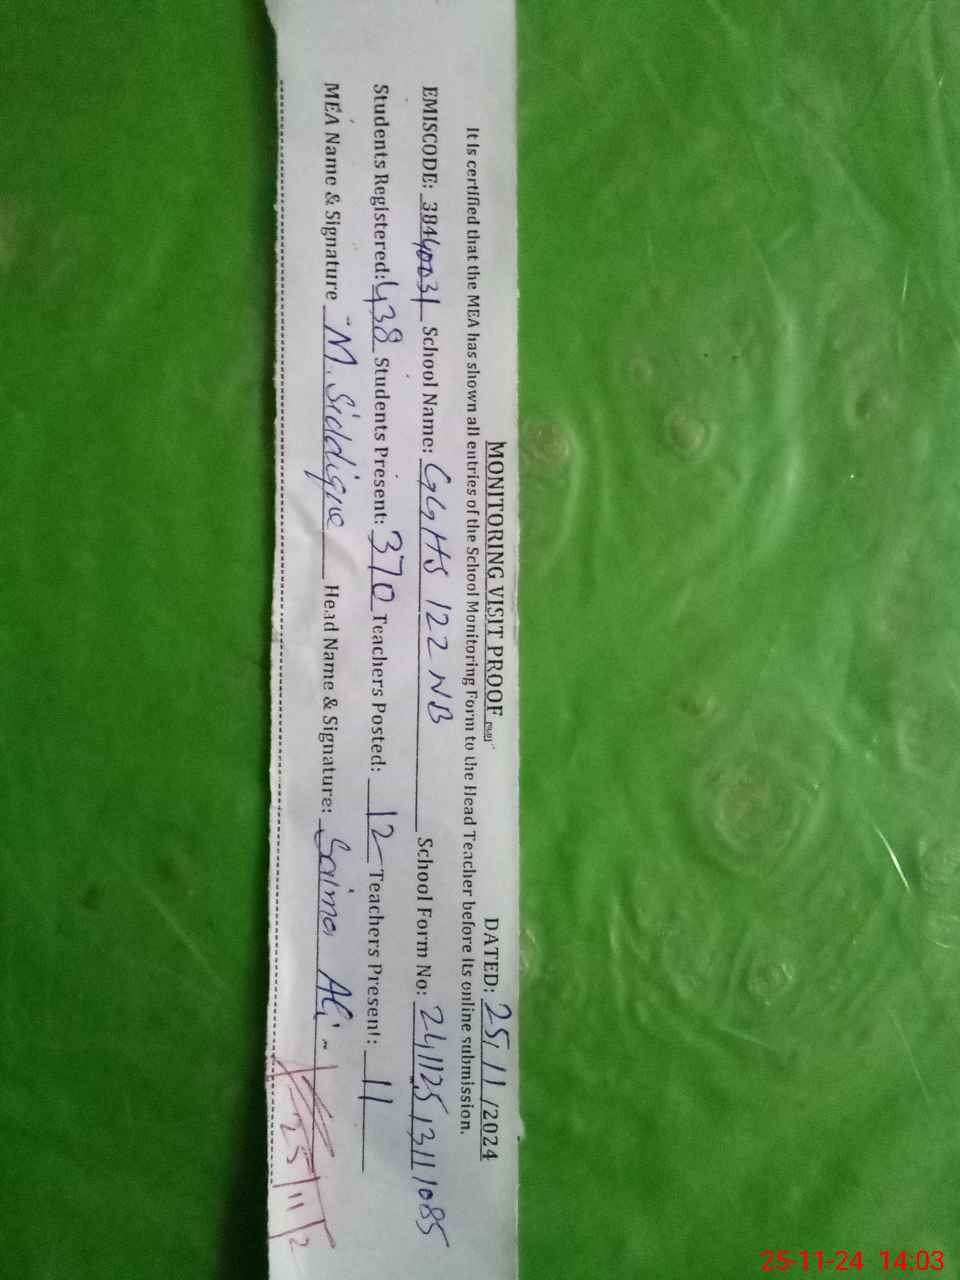 MONITORING VISIT PROOF DATED: 25/11/2024
It Is certified that the MEA has shown all entries of the School Monitoring Form to the Head Teacher before its online submission.
EMISCODE: 38440031 School Name: GGHS 122 NB School Form No: 241125131111085
Students Registered: 438 Students Present: 370 Teachers Posted: 12 Teachers Present: 11
MEA Name & Signature M. Siddique Head Name & Signature: Saima Ali
25/11/2
25-11-24 14:03